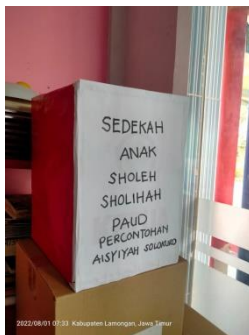 SEDEKAH
ANAK
SHOLEH
SHOLIHAH
PAUD
PERCONTOHAN
AISYIYAH SOLOKURO
2022/08/01 07:33 Kabupaten Lamongan, Jawa Timur